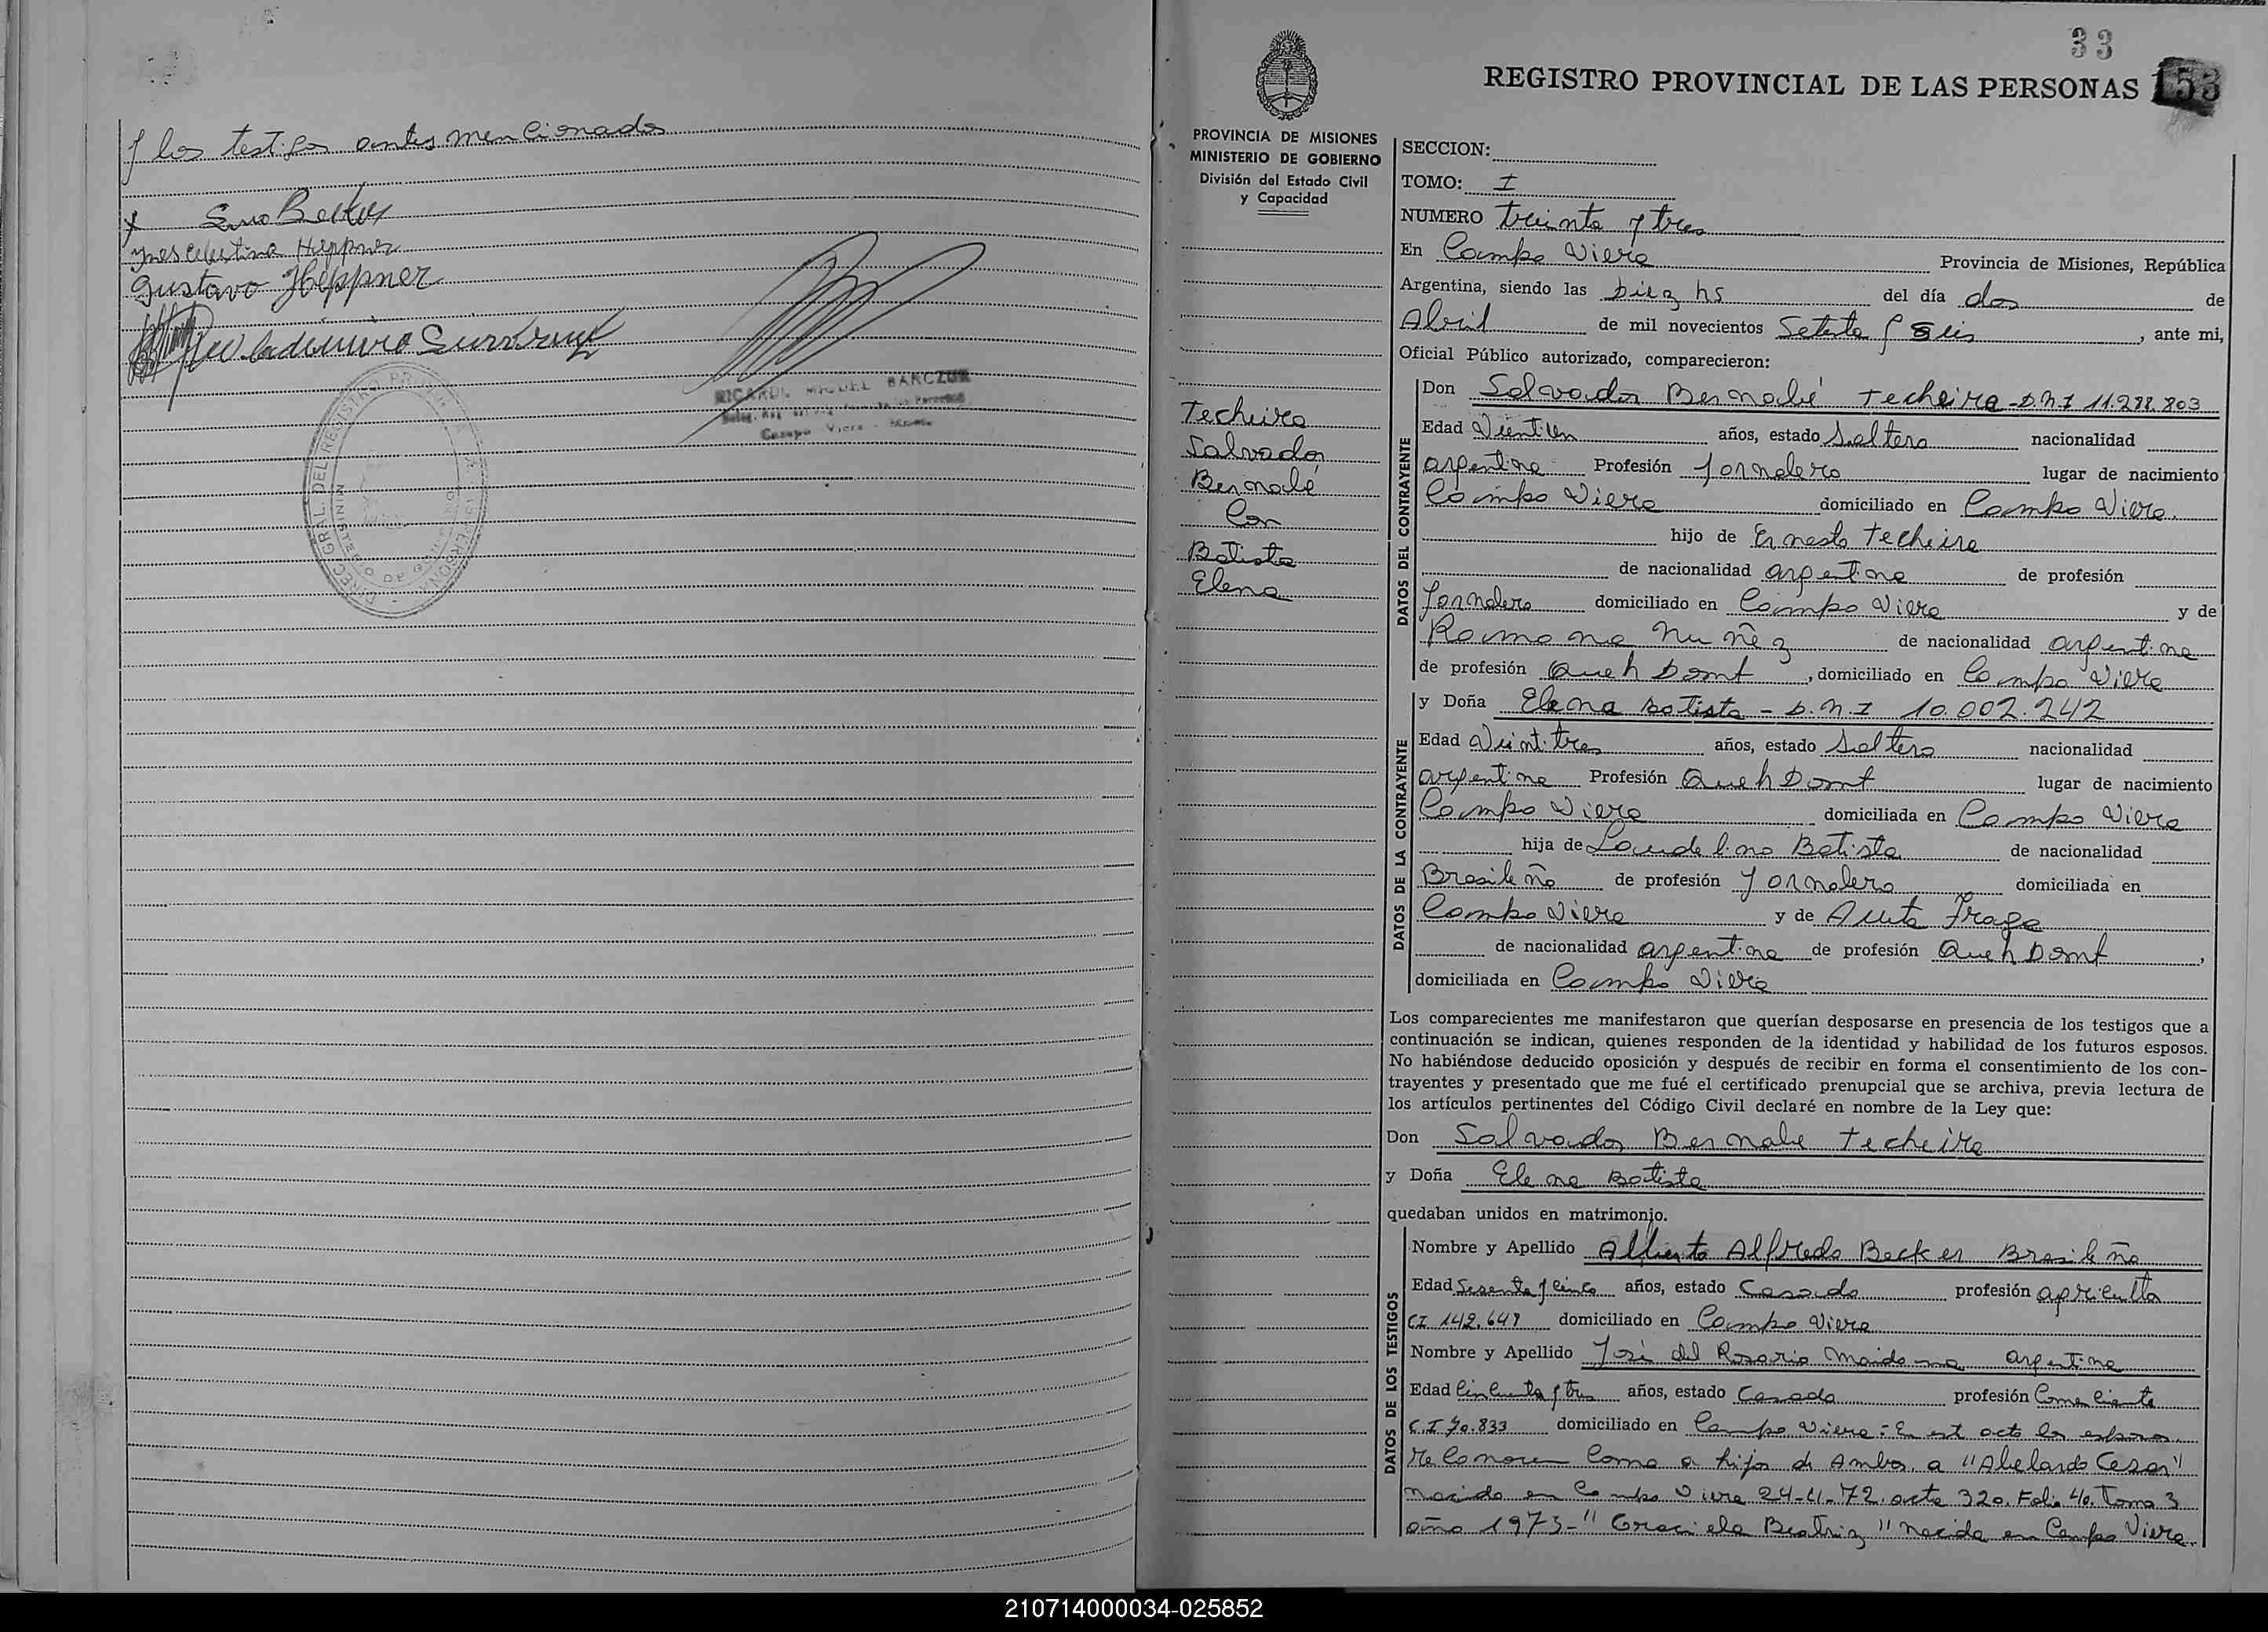 y los testigos antes mencionados
Ines Celestina Heppner
Gustavo Heppner
RICARDO MIGUEL BARCZUK
Campo Viera - Misiones
33
REGISTRO PROVINCIAL DE LAS PERSONAS 153
PROVINCIA DE MISIONES
MINISTERIO DE GOBIERNO
División del Estado Civil
y Capacidad
Techeira
Salvador
Bernabé
Con
Batista
Elena
SECCION:
TOMO: I
NUMERO treinta y tres
En Campo Viera Provincia de Misiones, República
Argentina, siendo las Diez hs del día dos de
Abril de mil novecientos Setenta y Seis, ante mi,
Oficial Público autorizado, comparecieron:
DATOS DEL CONTRAYENTE
Don Salvador Bernabé Techeira - D.N.I 11.288.803
Edad Vientiun años, estado Soltero nacionalidad
argentina Profesión Jornalero lugar de nacimiento
Campo Viera domiciliado en Campo Viera.
hijo de Ernesto Techeira
de nacionalidad argentina de profesión
Jornalero domiciliado en Campo Viera y de
Ramona Nuñez de nacionalidad argentina
de profesión Queh Domt, domiciliado en Campo Viera
DATOS DE LA CONTRAYENTE
y Doña Elena Batista - D.N.I 10.002.242
Edad Veintitres años, estado Soltera nacionalidad
argentina Profesión Queh Domt lugar de nacimiento
Campo Viera domiciliada en Campo Viera
hija de Laudelino Batista de nacionalidad
Brasileño de profesión Jornalero domiciliada en
Campo Viera y de Fraga
de nacionalidad argentina de profesión Queh Domt,
domiciliada en Campo Viera
Los comparecientes me manifestaron que querían desposarse en presencia de los testigos que a
continuación se indican, quienes responden de la identidad y habilidad de los futuros esposos.
No habiéndose deducido oposición y después de recibir en forma el consentimiento de los con-
trayentes y presentado que me fué el certificado prenupcial que se archiva, previa lectura de
los artículos pertinentes del Código Civil declaré en nombre de la Ley que:
Don Salvador Bernabe Techeira
y Doña Elena Batista
quedaban unidos en matrimonio.
DATOS DE LOS TESTIGOS
Nombre y Apellido Alberto Alfredo Becker Brasileño
Edad Sesenta y Cinco años, estado Casado profesión
CI 142.649 domiciliado en Campo Viera
Nombre y Apellido José del Rosario Maidana argentina
Edad Cincuenta y tres años, estado Casado profesión Comerciante
C.I 70.833 domiciliado en Campo Viera = En est acto los esposos
reconocen como a hijos de Ambos a "Abelardo Cesar"
nacido en Campo Viera 24-11-72. acta 320. Folio 40. Tomo 3
año 1973 - "Graciela Beatriz" nacida en Campo Viera.
210714000034-025852